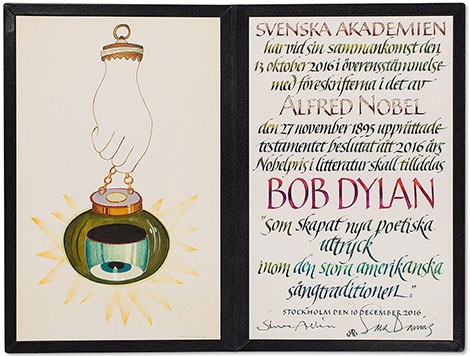 SVENSKA AKADEMIEN
har vid sin sammankomst den
13 oktober 2016 i överensstämmelse
med föreskrifterna i det av
ALFRED NOBEL
den 27 november 1895 upprättade
testamentet beslutat att 2016 års
Nobelpris i litteratur skall tilldelas
BOB DYLAN
"som skapat nya poetiska
uttryck
inom den stora amerikanska
sångtraditionen."
STOCKHOLM DEN 10 DECEMBER 2016